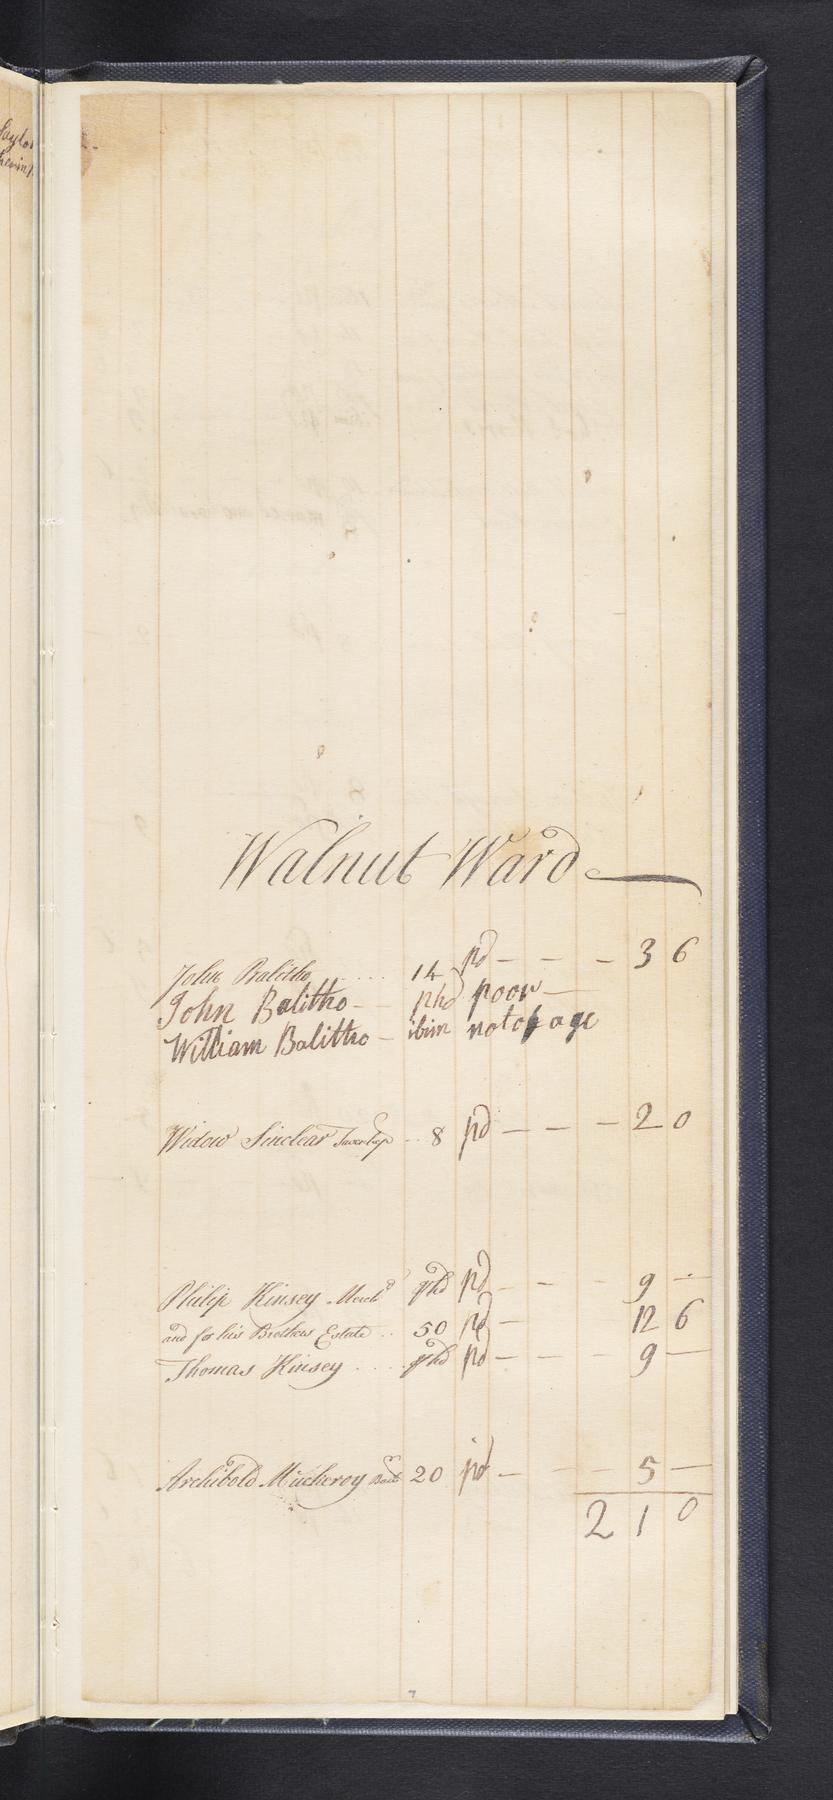 Walnut Ward
John Balitho ..... 14 pd - - - 3 6
John Balitho - phd poor
William Balitho - ibim not of age
Widow Sinclear .. 8 pd - - - 2 0
Philip Kinsey Merch phd pd - - - 9 -
and for his Brothers Estate .. 50 pd - 12 6
Thomas Kinsey .... phd pd - - - 9 -
Archibold Muckeroy 20 pd - - - 5 -
2 1 0